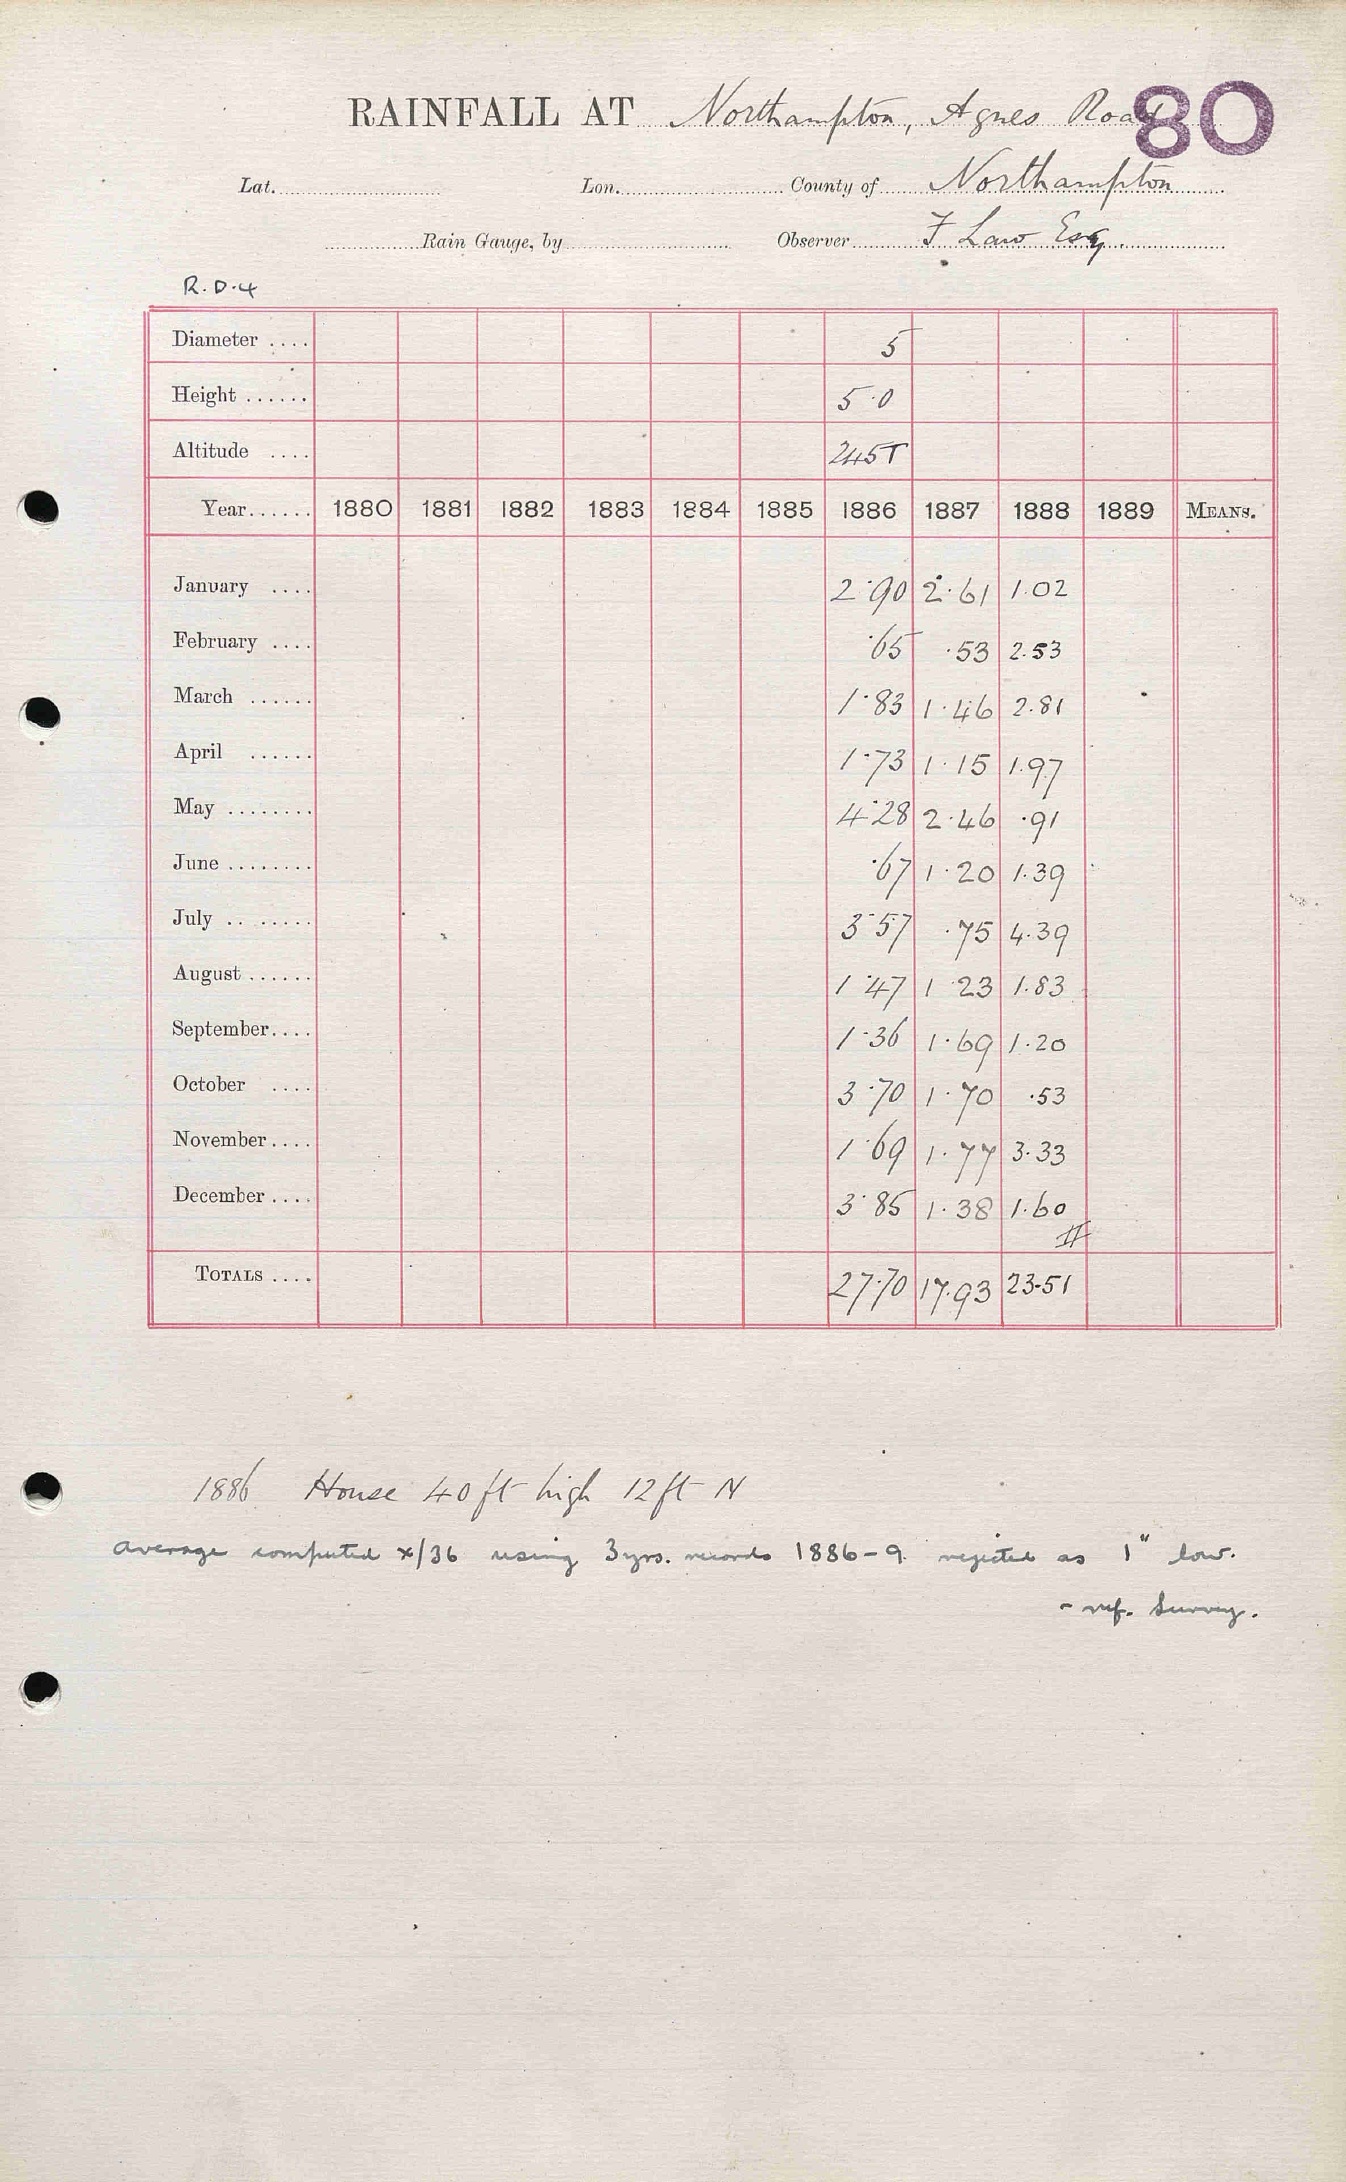 RAINFALL AT Northampton, Agnes Road 80
Lat. Lon. County of Northampton
Rain Gauge, by Observer F Law Esq.
R.D.4
Diameter .... 5
Height ...... 5.0
Altitude .... 245T
Year...... 1880 1881 1882 1883 1884 1885 1886 1887 1888 1889 MEANS.
January .... 2.90 2.61 1.02
February .... .65 .53 2.53
March ...... 1.83 1.46 2.81
April ...... 1.73 1.15 1.97
May ........ 4.28 2.46 .91
June ........ .67 1.20 1.39
July .. ...... 3.57 .75 4.39
August ...... 1.47 1 23 1.83
September.... 1.36 1.69 1.20
October .... 3.70 1.70 .53
November.... 1.69 1.77 3.33
December .... 3.85 1.38 1.60
TOTALS .... 27.70 17.93 23.51
1886 House 40 ft high 12 ft N
average computed x/36 using 3 yrs. records 1886-9 rejected as 1" low.
- ref. Survey.